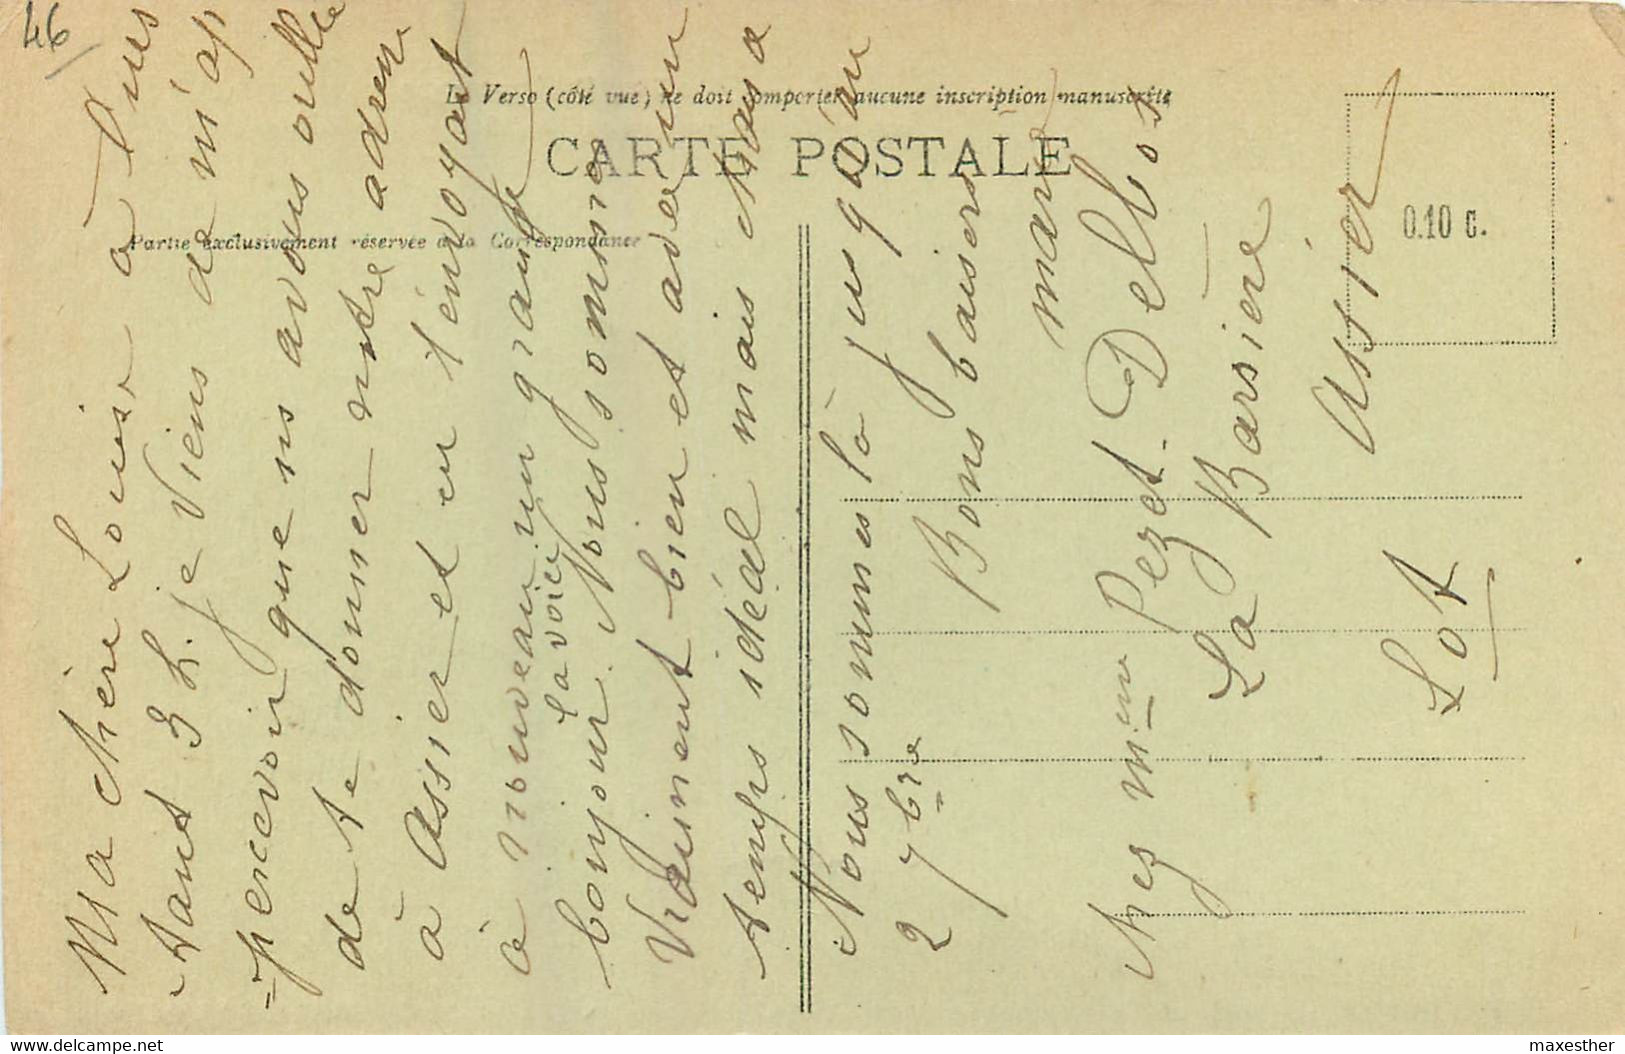 46
Le Verso (côté vue) ne doit comporter aucune inscription manuscrite
CARTE POSTALE
Partie exclusivement réservée à la Correspondance
0.10 c.
Ma chère Louise à l'ins
tant 3 h. je viens de m'ap
=percevoir que ns avons oublié
de te donner notre adresse
à Assier et en t'envoyant
à nouveau un grand
la voici
bonjour. Nous sommes
vraiment bien et avec un
temps idéal mais chaud
Nous sommes là jusqu'au
27 bre
Bons baisers
Chez Mme Pezet-Delbos
La Barsière
Assier
Lot
www.delcampe.net
maxesther